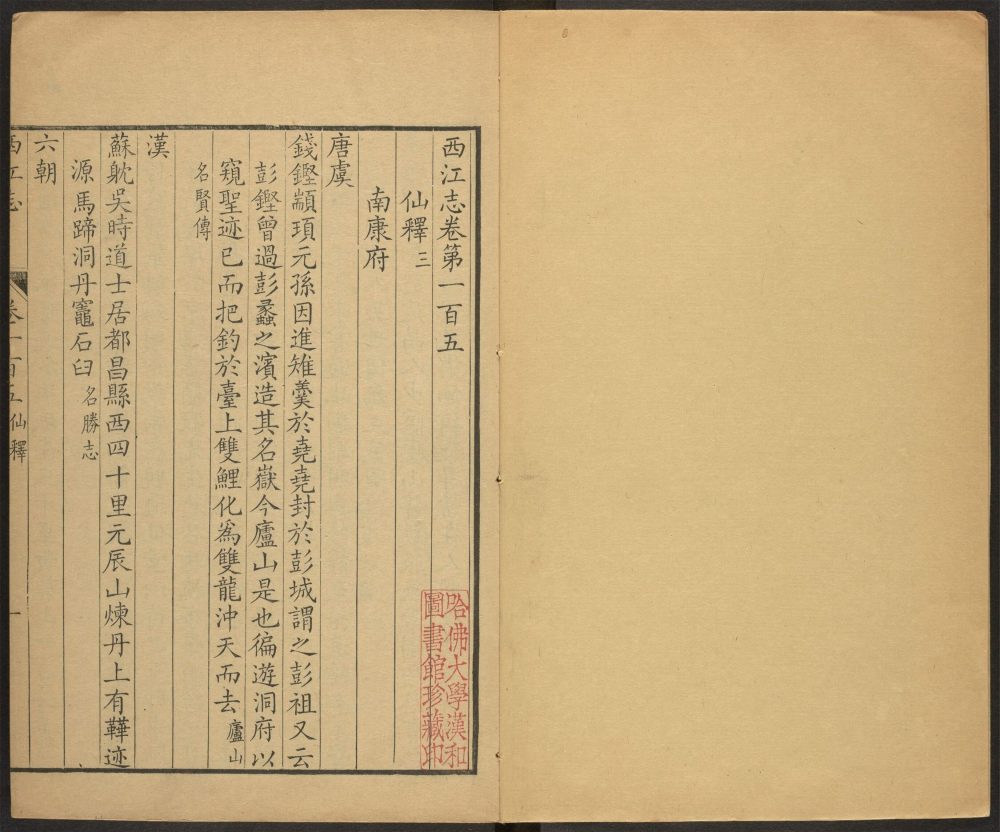 西江志卷第一百五
仙釋三
南康府
唐虞
錢鏗顓頊元孫因進雉羹於堯堯封於彭城謂之彭祖又云
彭鏗曾過彭蠡之濱造其名嶽今廬山是也徧遊洞府以
窺聖迹已而把釣於臺上雙鯉化爲雙龍沖天而去廬山
名賢傳
漢
蘇躭吳時道士居都昌縣西四十里元辰山煉丹上有鞾迹
源馬蹄洞丹竈石臼名勝志
六朝
西江志 卷一百五 仙釋 一
哈佛大學漢和
圖書館珍藏印